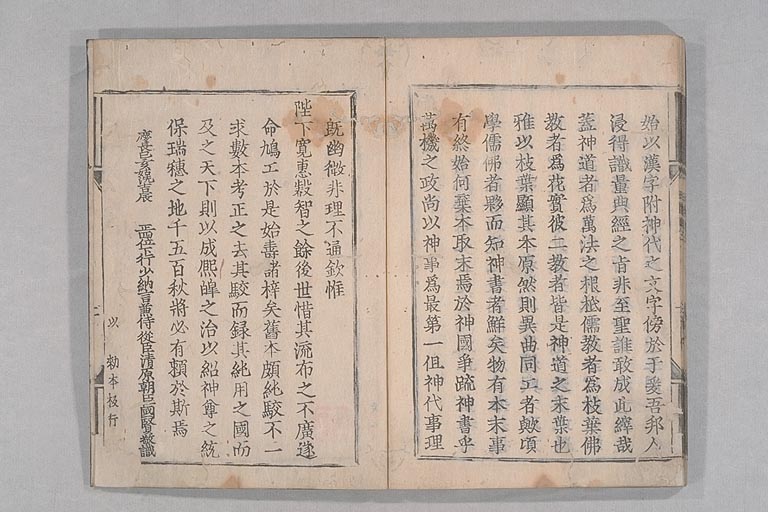 始以漢字附神代之文字傍於于爰吾邦人
浸得識量典經之旨非至聖誰敢成此縡哉
蓋神道者爲萬法之根柢儒教者爲枝葉佛
教者爲花實彼二教者皆是神道之末葉也
雖以枝葉顯其本原然則異曲同工者歟頃
學儒佛者夥而知神書者鮮矣物有本末事
有終始何棄本取末焉於神國爭疏神書乎
萬機之政尚以神事爲最第一但神代事理
既幽微非理不通欽惟
陛下寬惠叡智之餘後世惜其流布之不廣遂
命鳩工於是始壽諸梓矣舊本頗紕駁不一
求數本考正之去其駁而録其純用之國而
及之天下則以成熙皥之治以紹神尊之統
保瑞穗之地千五百秋將必有賴於斯焉
慶長己亥姽洗嘉辰 正四位下行少納言兼侍從臣清原朝臣國賢敬識
以 勅本板行